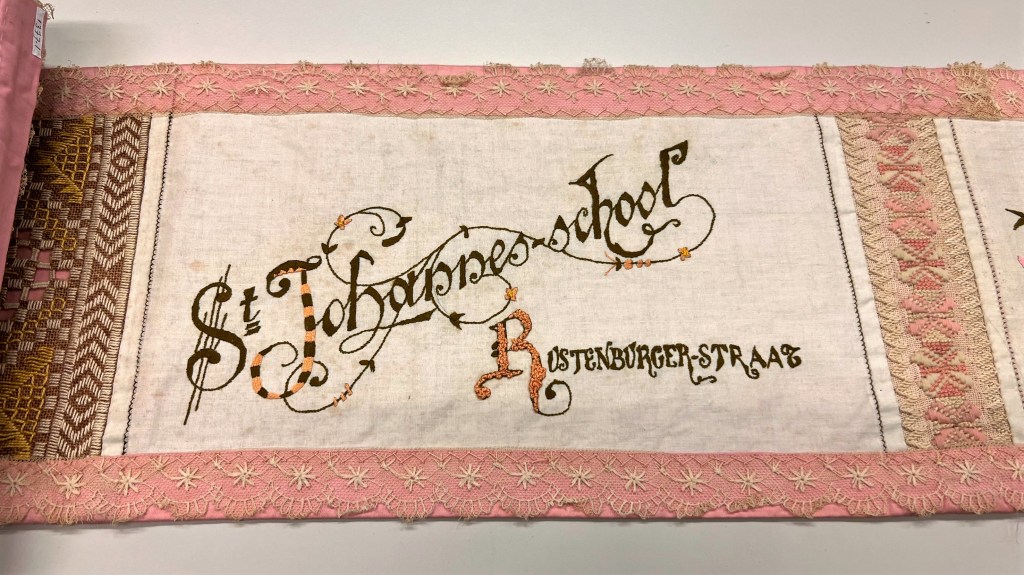 St= Johannes-school
Rustenburger-straat